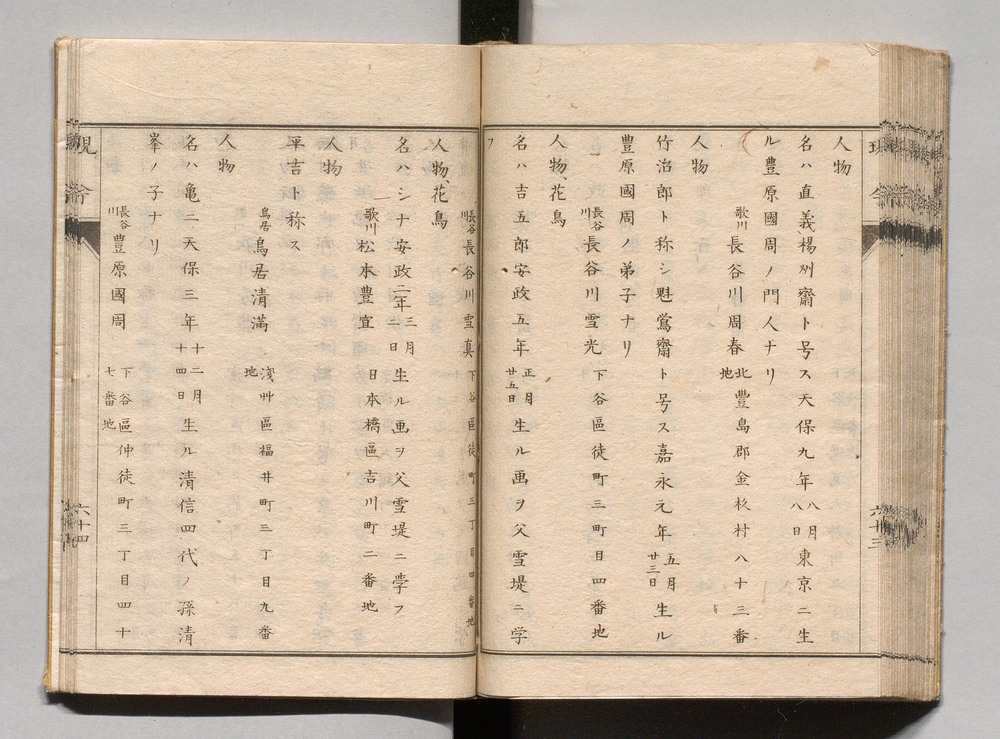 人物
名ハ直義楊洲齋ト号ス天保九年八月八日東京ニ生
ル豊原國周ノ門人ナリ
歌川 長谷川周春 北豊島郡金杉村八十三番地
人物
竹治郎ト称シ魁鶯齋ト号ス嘉永元年五月廿三日生ル
豊原國周ノ弟子ナリ
長谷川 長谷川雪光 下谷區徒町三町目四番地
人物、花鳥
名ハ吉五郎安政五年正月廿五日生ル画ヲ父雪堤ニ学
フ
長谷川 長谷川雪真 下谷區徒町三丁目四番地
人物花鳥
名ハシナ安政二年三月二日生ル画ヲ父雪堤ニ学フ
歌川 松本豊宣 日本橋區吉川町二番地
人物
平吉ト称ス
鳥居 鳥居清満 淺艸區福井町三丁目九番地
人物
名ハ亀二天保三年十二月十四日生ル清信四代ノ孫清
峯ノ子ナリ
長谷川 豊原國周 下谷區仲徒町三丁目四十七番地
現今
六十四
六十三